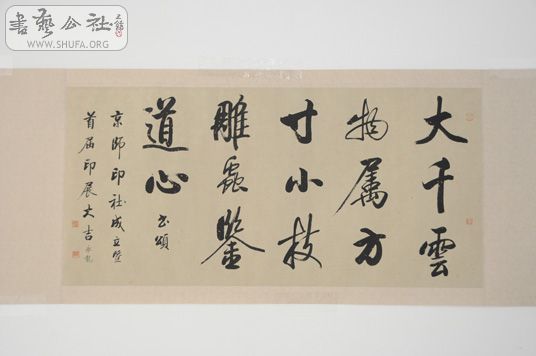 書藝公社
WWW.SHUFA.ORG
大千雲
物属方
寸小技
雕蟲鑒
道心 书頌
京師印社成立暨
首届印展大吉